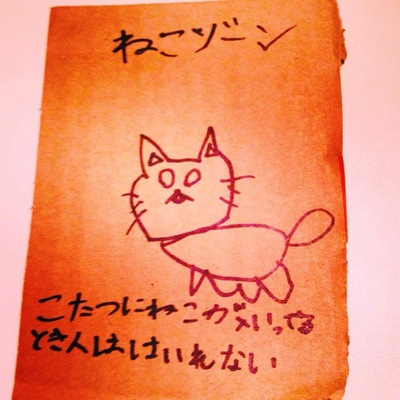 ねこゾーン
こたつにねこがはいってる
とき人ははいれない